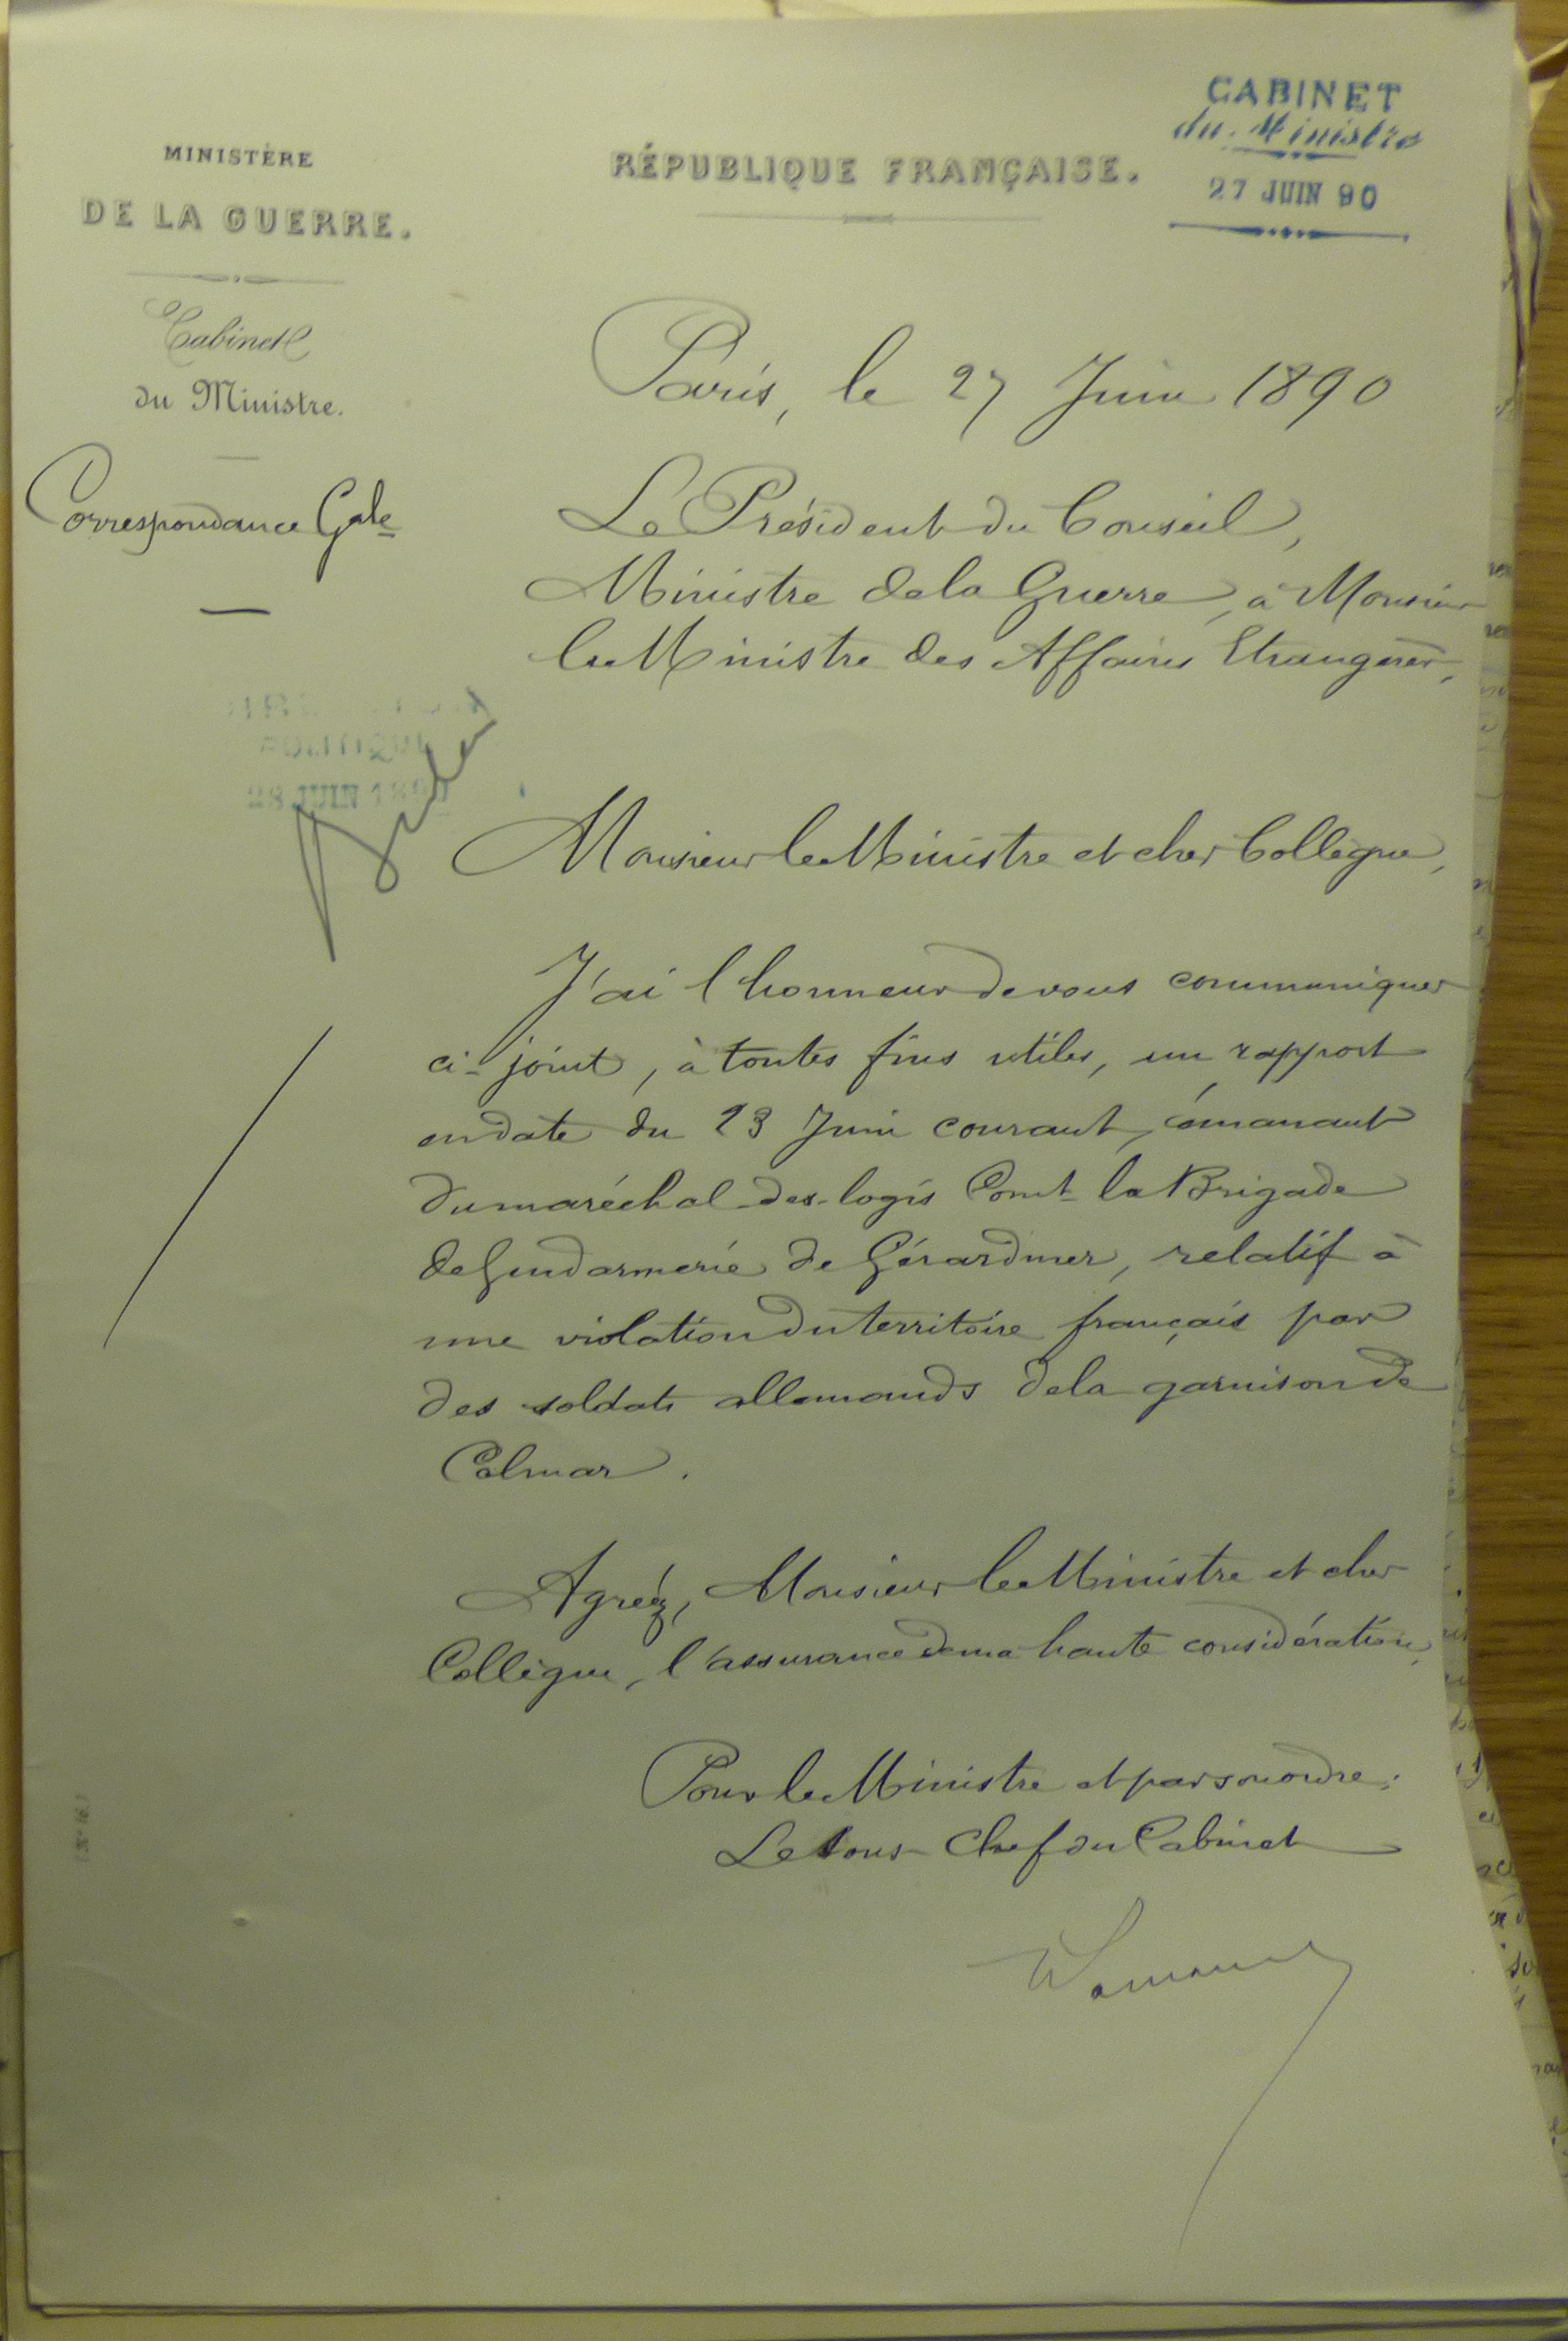 MINISTÈRE
DE LA GUERRE.
Cabinet
du Ministre.
Correspondance Gale
RÉPUBLIQUE FRANÇAISE.
CABINET
du Ministre
27 JUIN 90
Paris, le 27 Juin 1890
Le Président du Conseil,
Ministre de la Guerre, à Monsieur
le Ministre des Affaires Etrangères,
POLITIQUE
28 JUIN 1890
Monsieur le Ministre et cher Collègue,
J'ai l'honneur de vous communiquer
ci-joint, à toutes fins utiles, un rapport
en date du 23 Juin courant, émanant
du maréchal-des-logis Comt la Brigade
de Gendarmerie de Gérardmer, relatif à
une violation du territoire français par
des soldats allemands de la garnison de
Colmar.
Agréez, Monsieur le Ministre et cher
Collègue, l'assurance de ma haute considération,
Pour le Ministre et par son ordre:
Le Sous-Chef du Cabinet